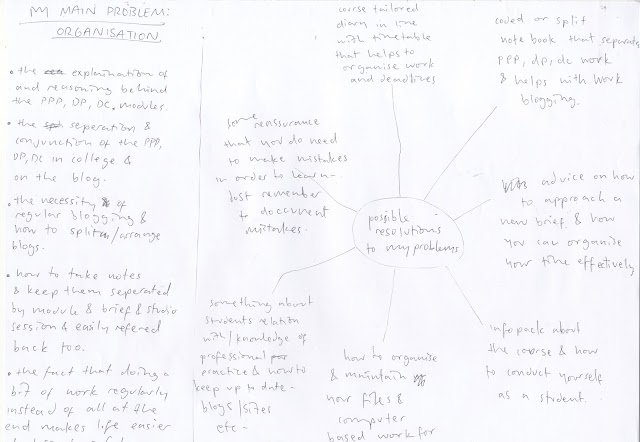 MY MAIN PROBLEM:
ORGANISATION
• the explanation of
and reasoning behind
the PPP, DP, DC. modules.
• the seperation &
conjunction of the PPP,
DP, DC in college &
on the blog.
• the necessity of
regular blogging &
how to split/arrange
blogs.
• how to take notes
& keep them seperated
by module & brief & studio
session & easily refered
back too.
• the fact that doing a
bit of work regularly
instead of all at the
end makes life easier
course tailored
diary in line
with timetable
that helps to
organise work
and deadlines
coded or split
note book that separates
PPP, DP, DC work
& helps with work
blogging.
some reassurance
that you do need
to make mistakes
in order to learn -
just remember
to document
mistakes.
possible
resolutions
to my problems
advice on how
to approach a
new brief & how
you can organise
your time effectively
something about
students relation
with/knowledge of
professional
practice & how to
keep up to date -
blogs/sites
etc -
how to organise
& maintain
your files &
computer
based work for
info pack about
the course & how
to conduct yourself
as a student.